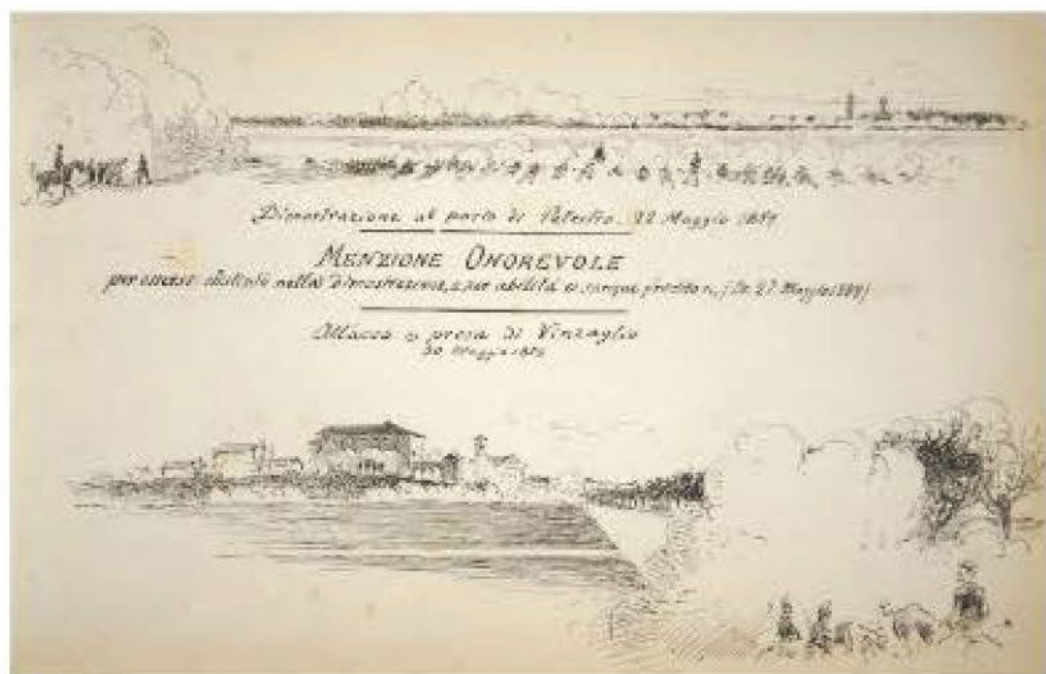 Dimostrazione al porto di Palestro 22 Maggio 1859
MENZIONE ONOREVOLE
per essersi distinto nella Dimostrazione, e per abilità e sangue 27 Maggio 1859)
Attacco e presa di Vinzaglio
30 Maggio 1859